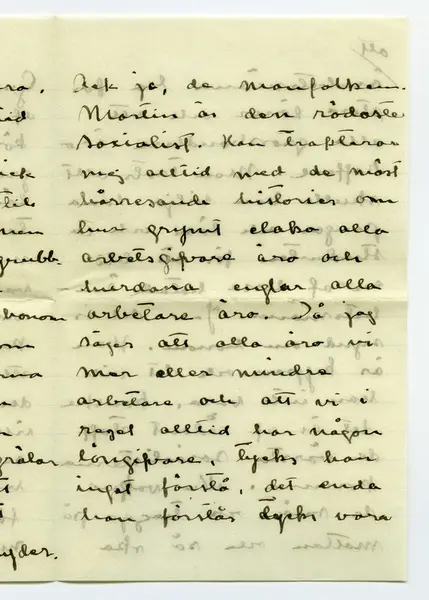 Ack ja, de manfolken.
Martin är den rödaste
socialist. Han trakterar
mej alltid med de mäst
hårresande histories om
hur grymt elaka alla
arbetsgifvare äro och
hurdana englar alla
arbetare äro. Då jag
säger att alla äro vi
mer eller mindre
arbetare och att vi i
regel alltid har någon
löngifvare, tycks han
inget förstå, det enda
han förstår tycks vara